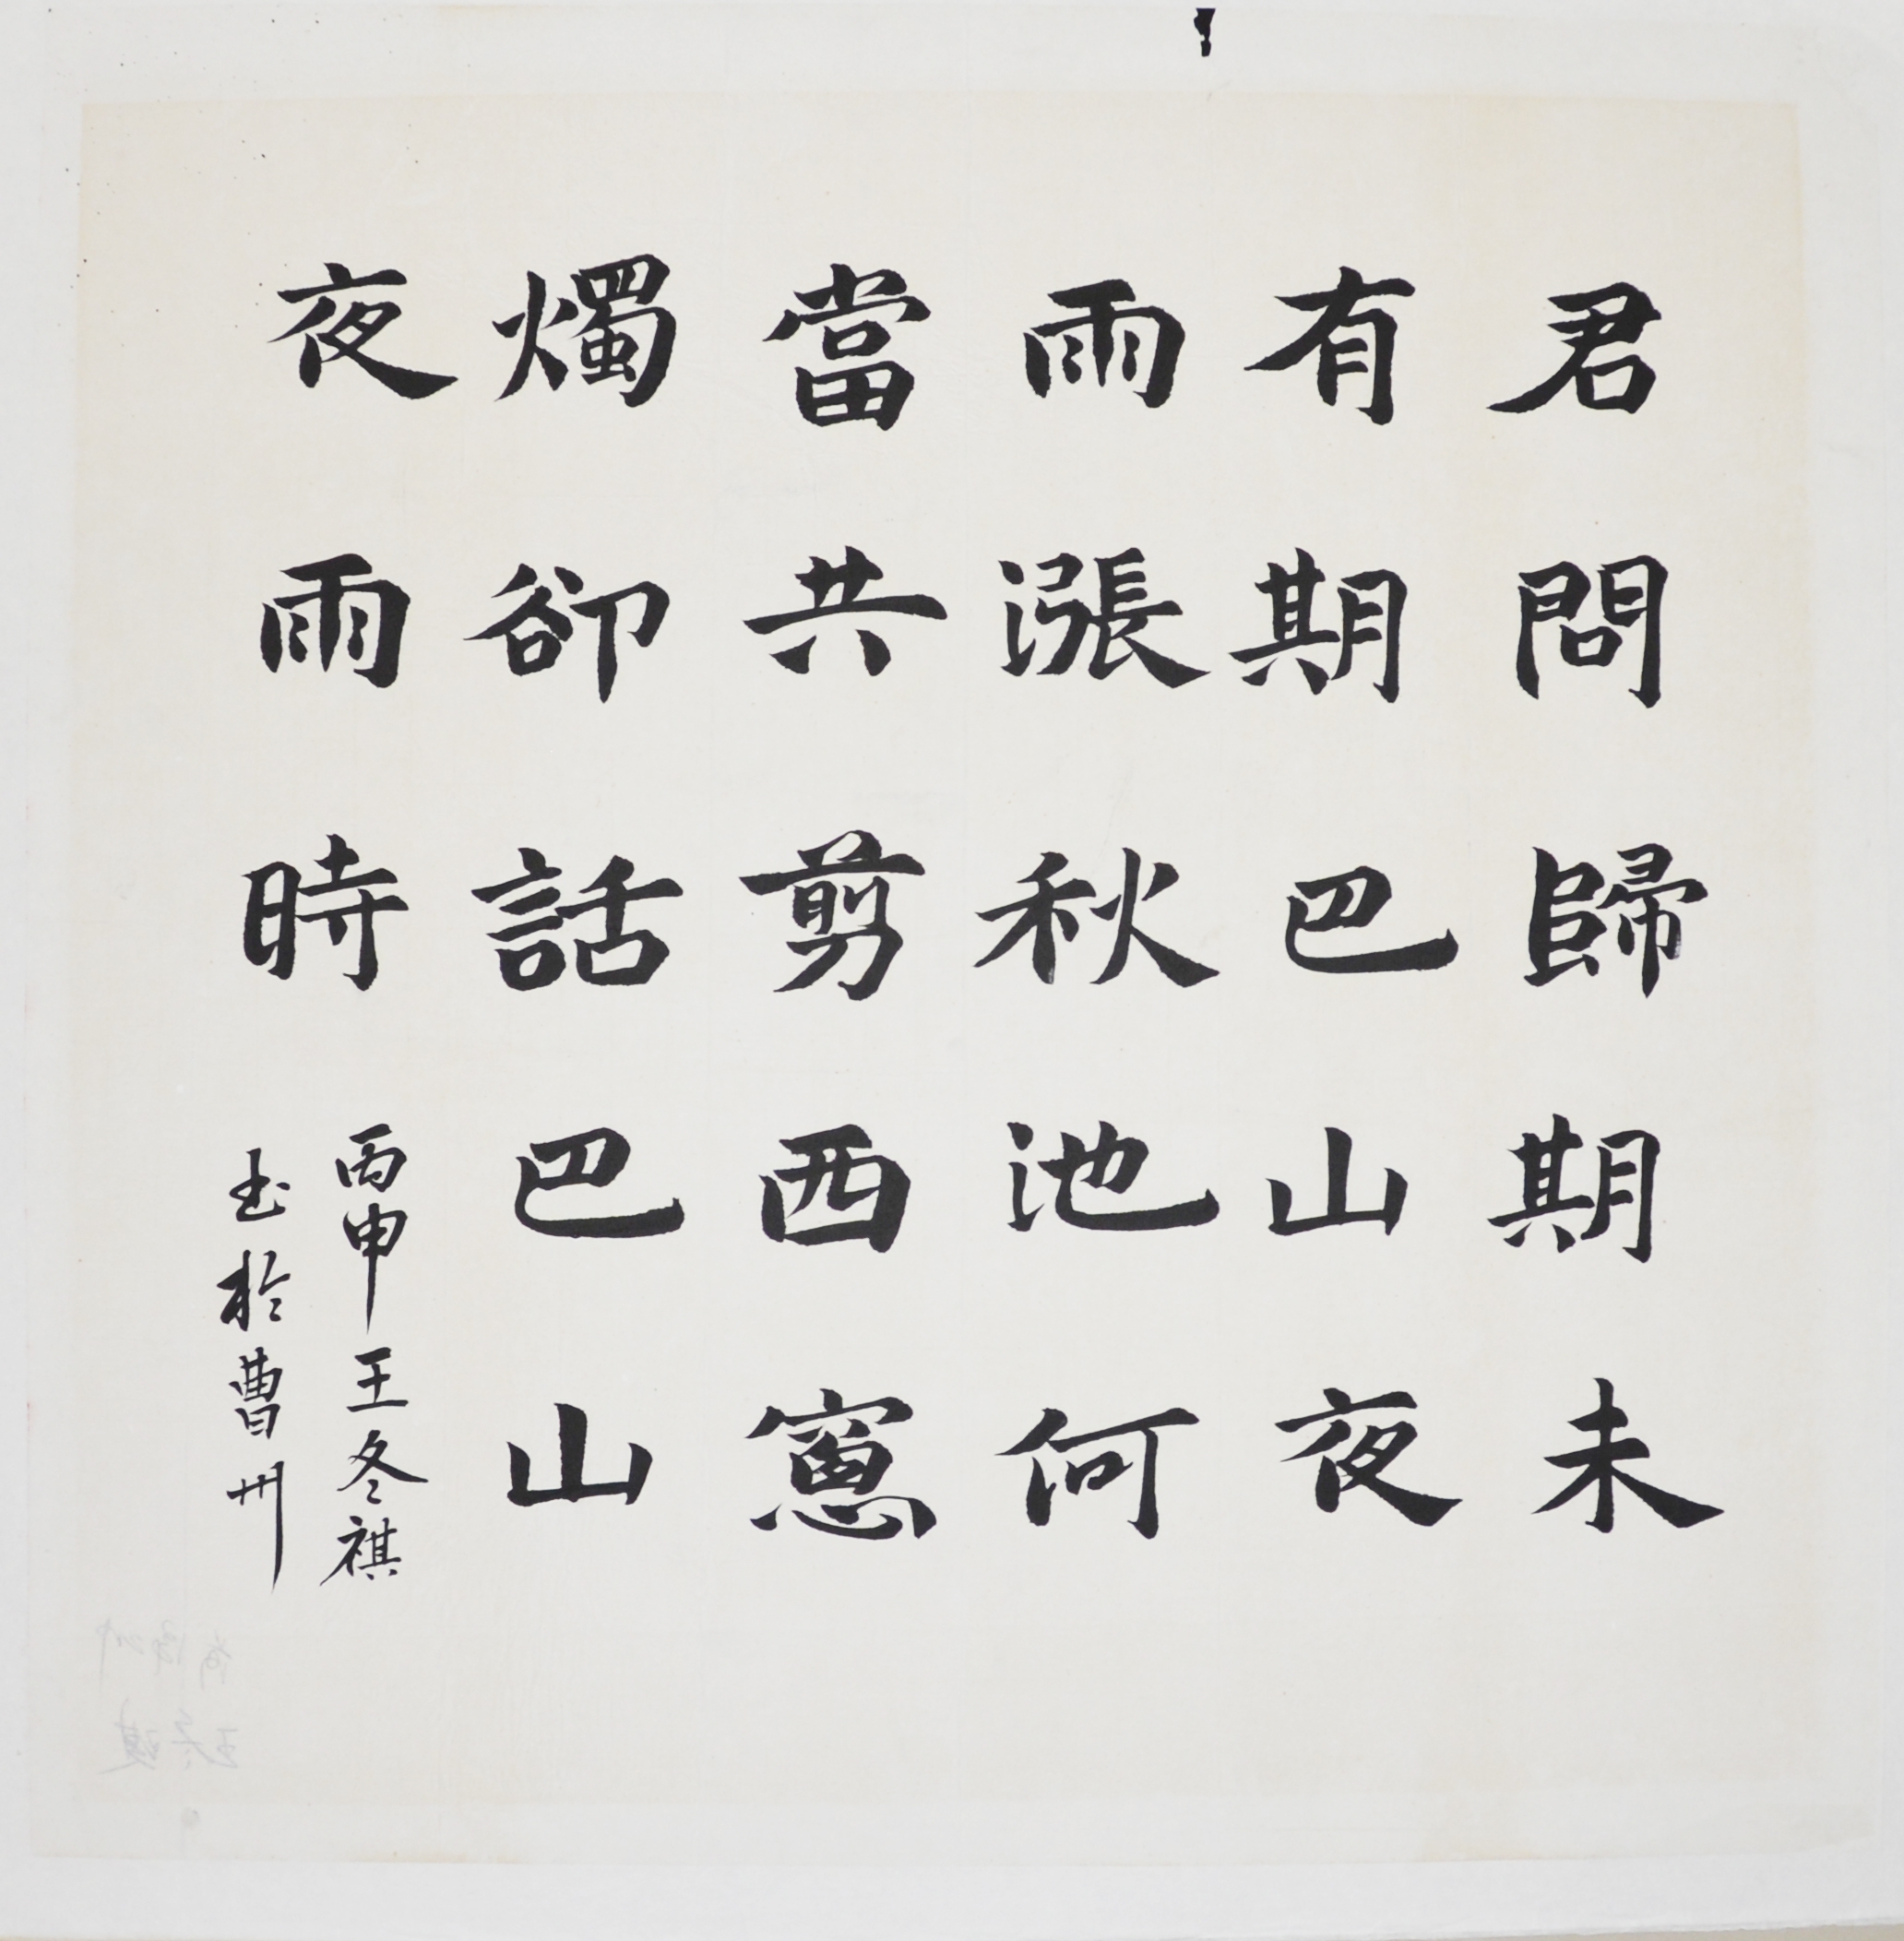 君問歸期未
有期巴山夜
雨漲秋池何
當共剪西窻
燭卻話巴山
夜雨時
丙申王冬祺
玉於曹州